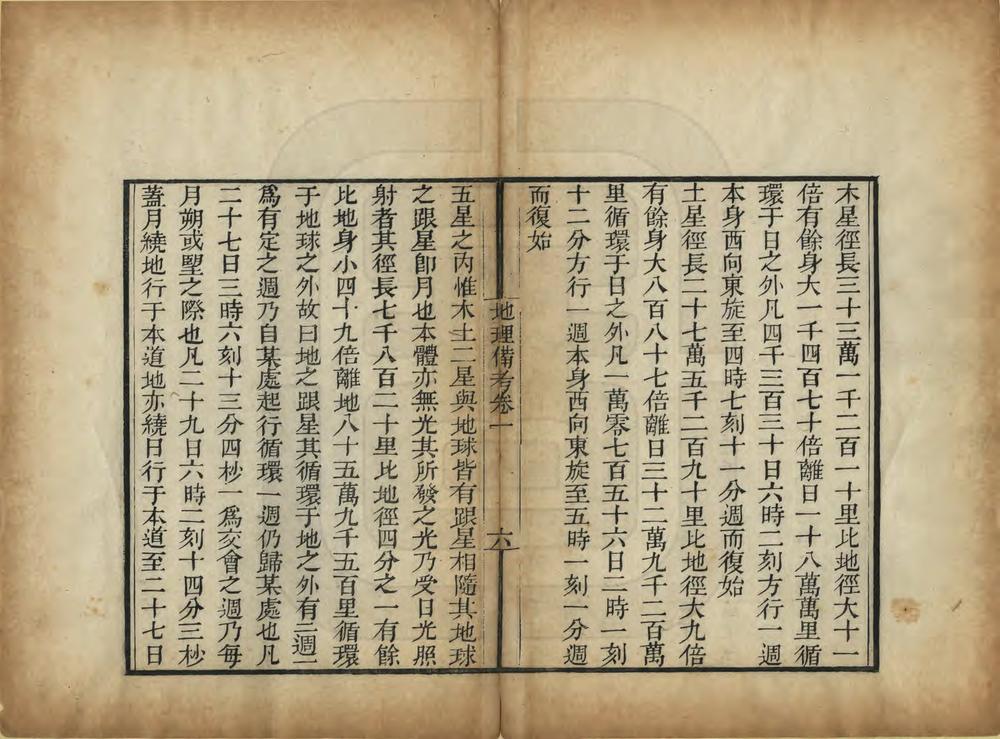 木星徑長三十三萬一千二百一十里比地徑大十一
倍有餘身大一千四百七十倍離日一十八萬萬里循
環于日之外凡四千三百三十日六時二刻方行一週
本身西向東旋至四時七刻十一分週而復始
土星徑長二十七萬五千二百九十里比地徑大九倍
有餘身大八百八十七倍離日三十二萬九千二百萬
里循環于日之外凡一萬零七百五十六日二時一刻
十二分方行一週本身西向東旋至五時一刻一分週
而復始
地理備考卷一
六
五星之內惟木土二星與地球皆有跟星相隨其地球
之跟星卽月也本體亦無光其所發之光乃受日光照
射者其徑長七千八百二十里比地徑四分之一有餘
比地身小四十九倍離地八十五萬九千五百里循環
于地球之外故曰地之跟星其循環于地之外有二週一
爲有定之週乃自某處起行循環一週仍歸某處也凡
二十七日三時六刻十三分四秒一爲交會之週乃每
月朔或望之際也凡二十九日六時二刻十四分三秒
蓋月繞地行于本道地亦繞日行于本道至二十七日